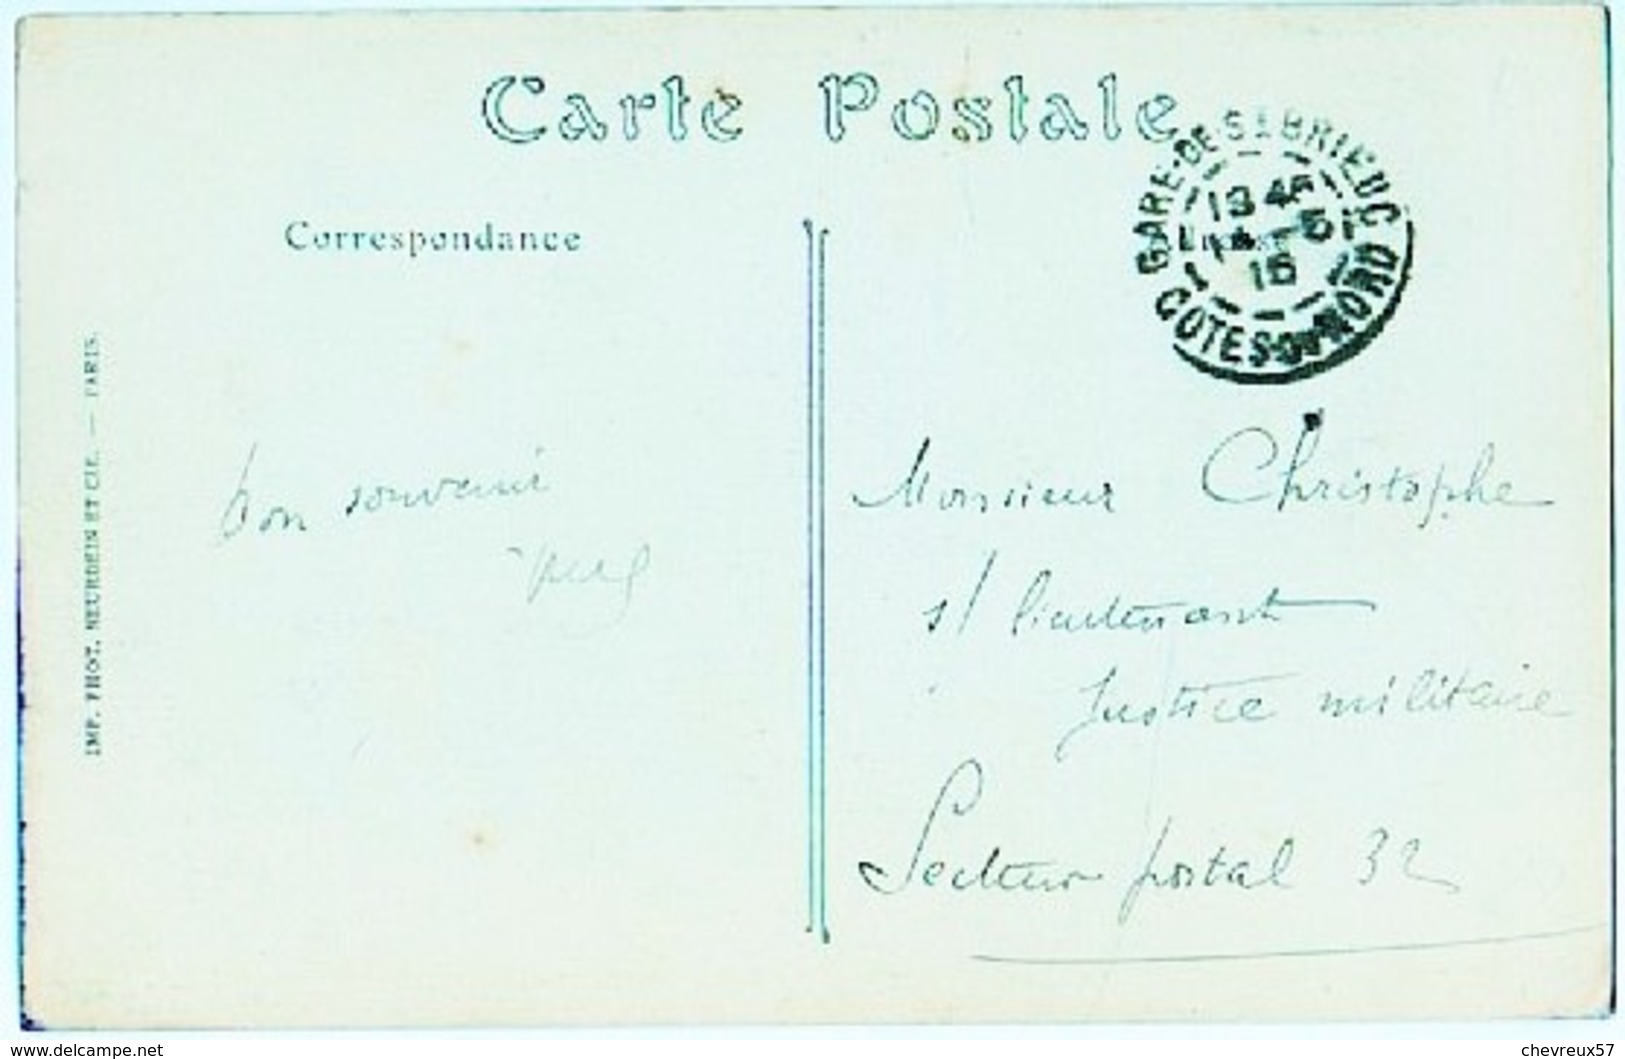 Carte Postale
GARE-DE-ST BRIEUC
1345
15
COTES-DU-NORD
Correspondance
IMP. PHOT. NEURDEIN ET CIE. — PARIS.
bon souvenir
Monsieur Christophe
s/ lieutenant
Justice militaire
Secteur postal 32
www.delcampe.net
chevreux57